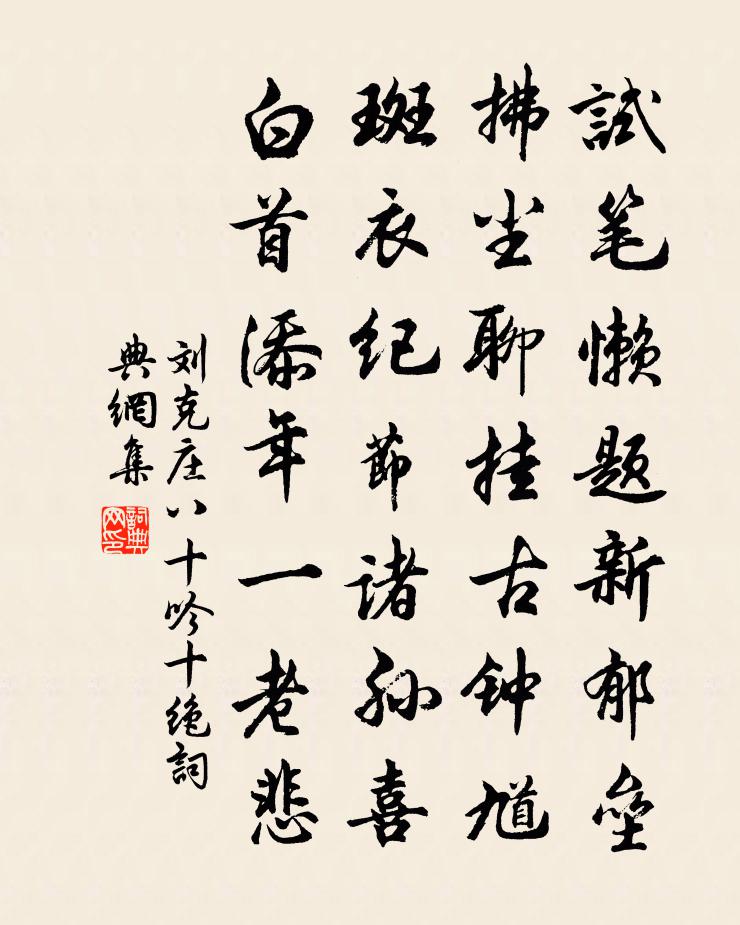 試笔懒题新郁垒
拂尘聊挂古钟馗
斑衣纪節诸孙喜
白首添年一老悲
刘克庄八十吟十绝詞
典網集
詞典
网印